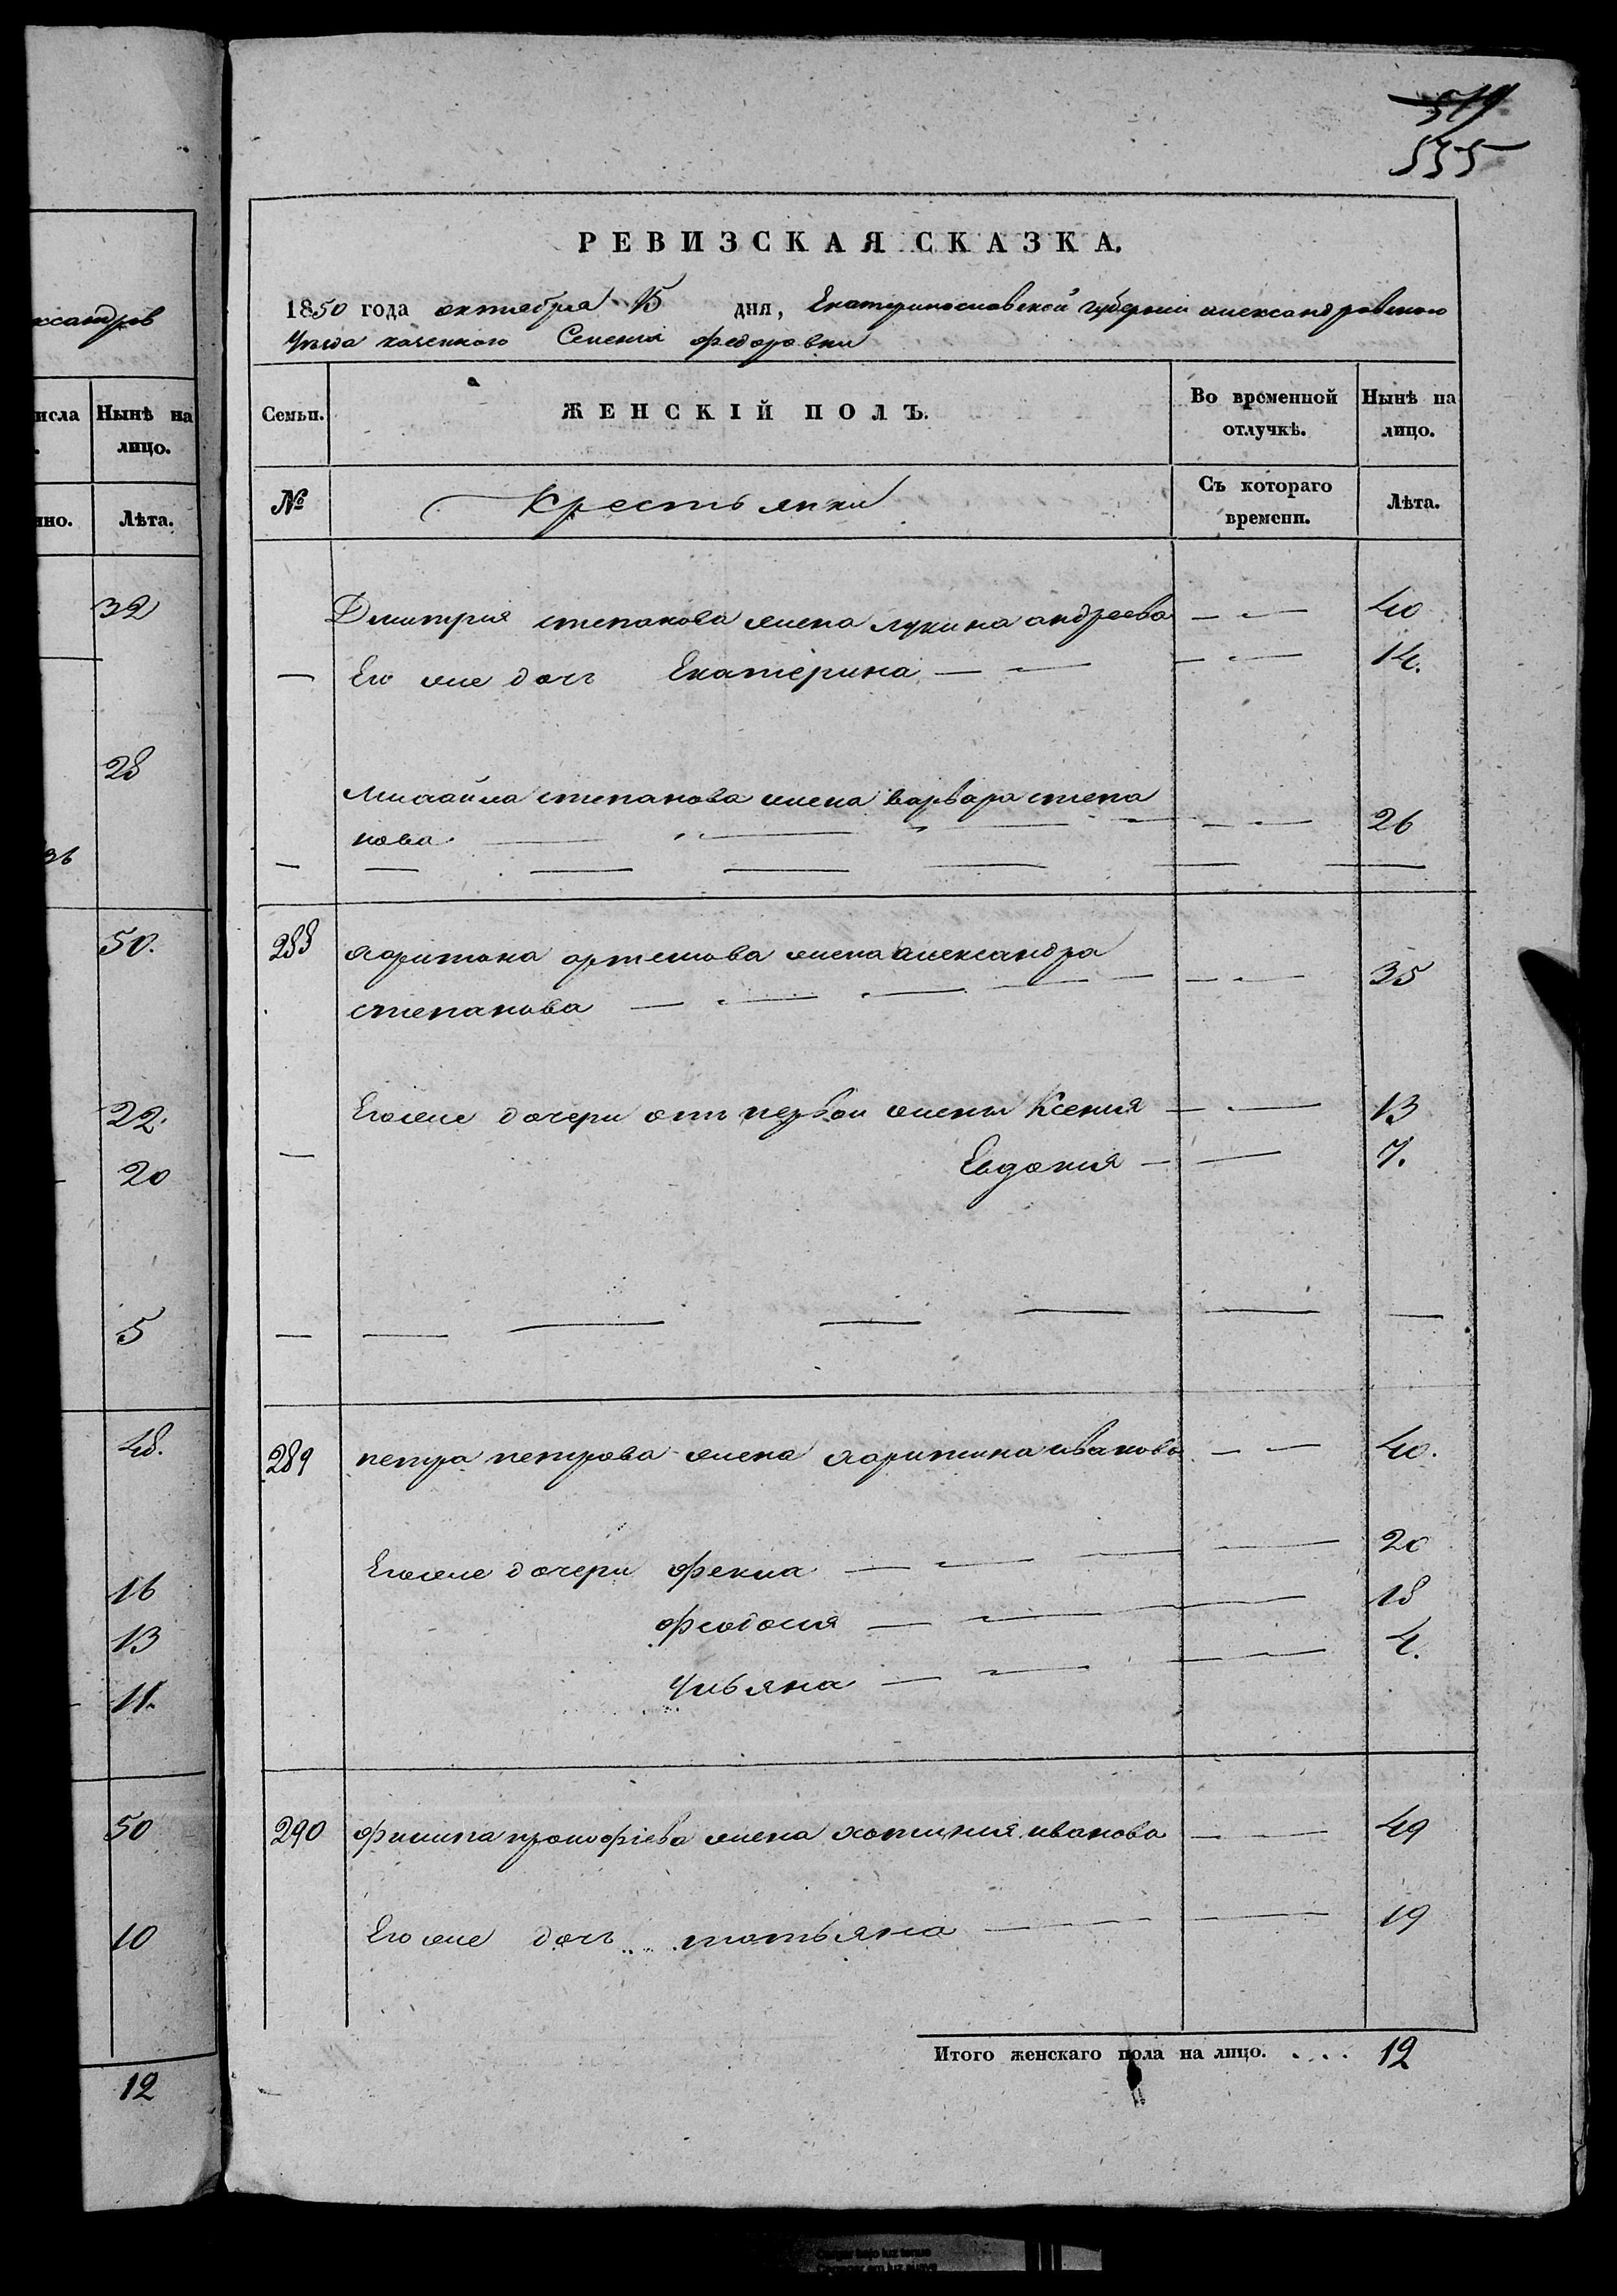 ксандров
исла Нынѣ на
лицо.
нно. Лѣта.
32
28
36
50.
22.
20
5
48.
16
13
11.
50
10
12
519
535
РЕВИЗСКАЯ СКАЗКА.
1850 года октября 15 дня, Екатеринославской губернии александровского
уезда казенного Селения федоровки
Семьи. ЖЕНСКІЙ ПОЛЪ. Во временной отлучкѣ. Нынѣ на лицо.
№ Крестьянки Съ котораго времени. Лѣта.
Дмитрия степанова жена лукина андреева — — 40
— Его же дочь Екатерина — — — — 14.
Михайла степанова жена варвара степа
нова — — — — — — 26
288 харитона артемова жена александра
степанова — — — — — — — 35
Егоже дочери отъ первои жены Ксения — — 13
— Евдокия — — 7.
289 петра петрова жена харитина иванова — — 40.
Егоже дочери фекла — — — — 20
феодосия — — — 18
Ульяна — — — — 4.
290 филипа прокофіева жена иванова — — 49
Его же дочь татьяна — — — 19
Итого женскаго пола на лицо. . . . . 12